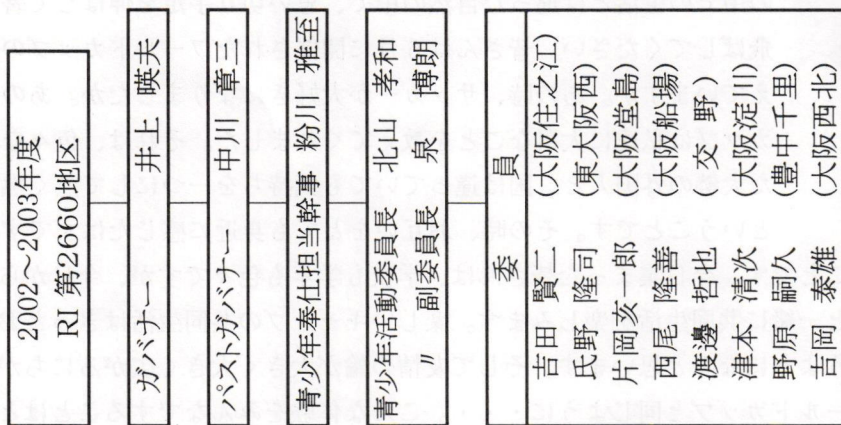 2002～2003年度
RI 第2660地区
ガバナー 井上 暎夫
パストガバナー 中川 章三
青少年奉仕担当幹事 粉川 雅至
青少年活動委員長 北山 孝和
〃 副委員長 泉 博朗
委員
吉田 賢一 (大阪住之江)
氏野 隆司 (東大阪西)
片岡 亥一郎 (大阪堂島)
西尾 隆善 (大阪船場)
渡邊 哲也 (交野)
津本 清次 (大阪淀川)
野原 嗣久 (豊中千里)
吉岡 泰雄 (大阪西北)